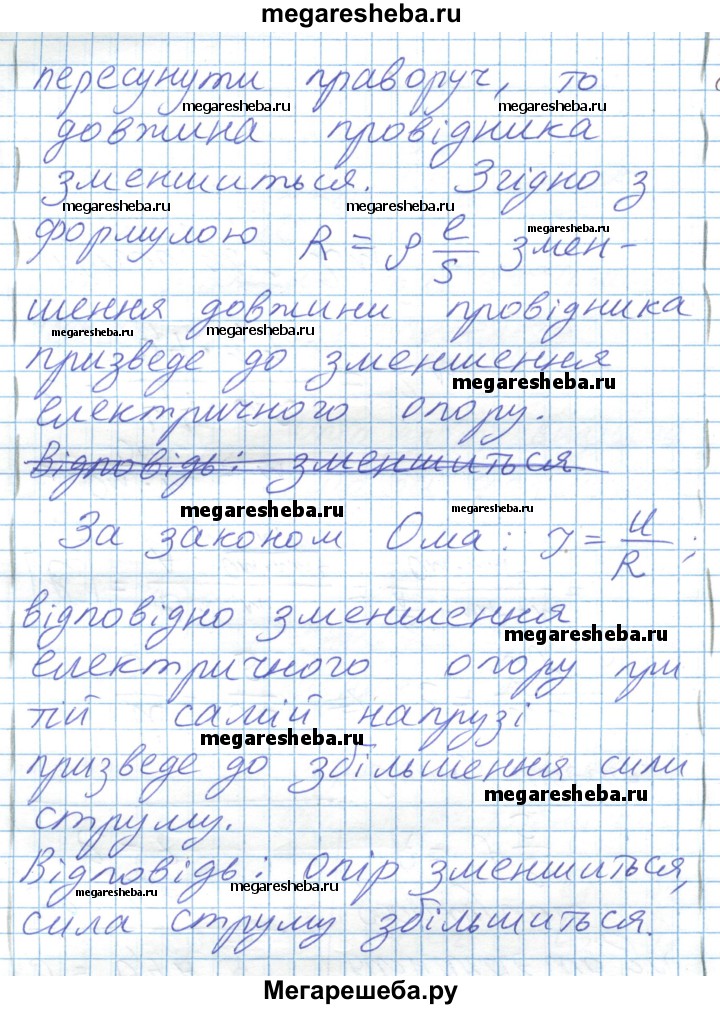 megaresheba.ru
пересунути праворуч, то
megaresheba.ru megaresheba.ru
довжина провідника
megaresheba.ru
зменшиться. Згідно з
megaresheba.ru megaresheba.ru
формулою R = ρ l/S змен-
megaresheba.ru
шення довжини провідника
megaresheba.ru megaresheba.ru
призведе до зменшення
megaresheba.ru
електричного опору.
Відповідь: зменшиться
megaresheba.ru megaresheba.ru
За законом Ома: I = U/R;
відповідно зменшення
megaresheba.ru
електричного опору при
тій самій напрузі
megaresheba.ru
призведе до збільшення сили
megaresheba.ru
струму.
Відповідь: опір зменшиться,
megaresheba.ru megaresheba.ru
сила струму збільшиться.
Мегарешеба.ру